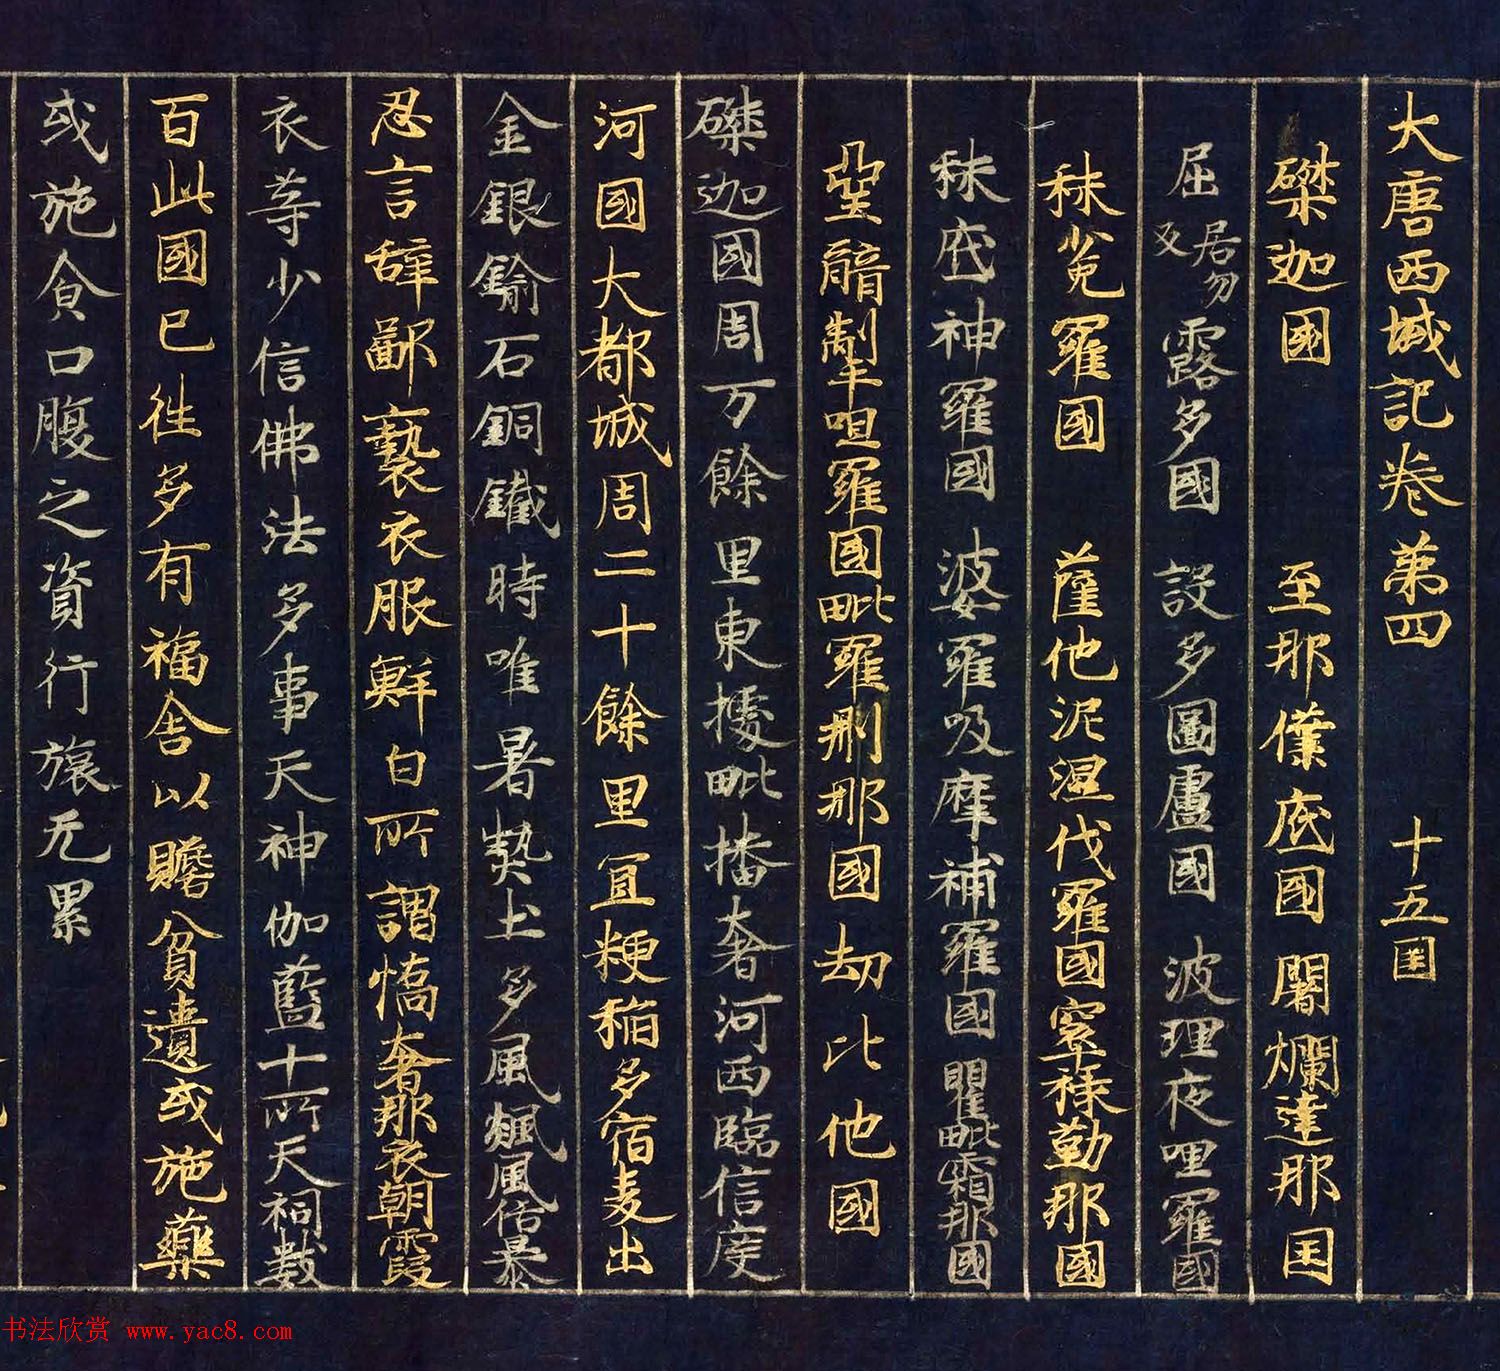 大唐西域記卷第四 十五国
磔迦國 至那僕底國 闍爛達那国
屈居勿反露多國 設多圖盧國 波理夜呾羅國
秣菟羅國 薩他泥濕伐羅國 窣祿勤那國
秣底神羅國 婆羅吸摩補羅國 瞿毗霜那國
堊醯掣呾羅國 毗羅刪那國 劫比他國
磔迦國周万餘里東據毗播奢河西臨信度
河國大都城周二十餘里宜粳稲多宿麦出
金銀鍮石銅鐵時唯暑熱土多風飆風俗暴
忍言辞鄙褻衣服鮮白所謂憍奢耶衣朝霞
衣等少信佛法多事天神伽藍十所天祠数
百此國已往多有福舎以贍貧遺或施藥
或施食口腹之資行旅无累
书法欣赏 www.yac8.com